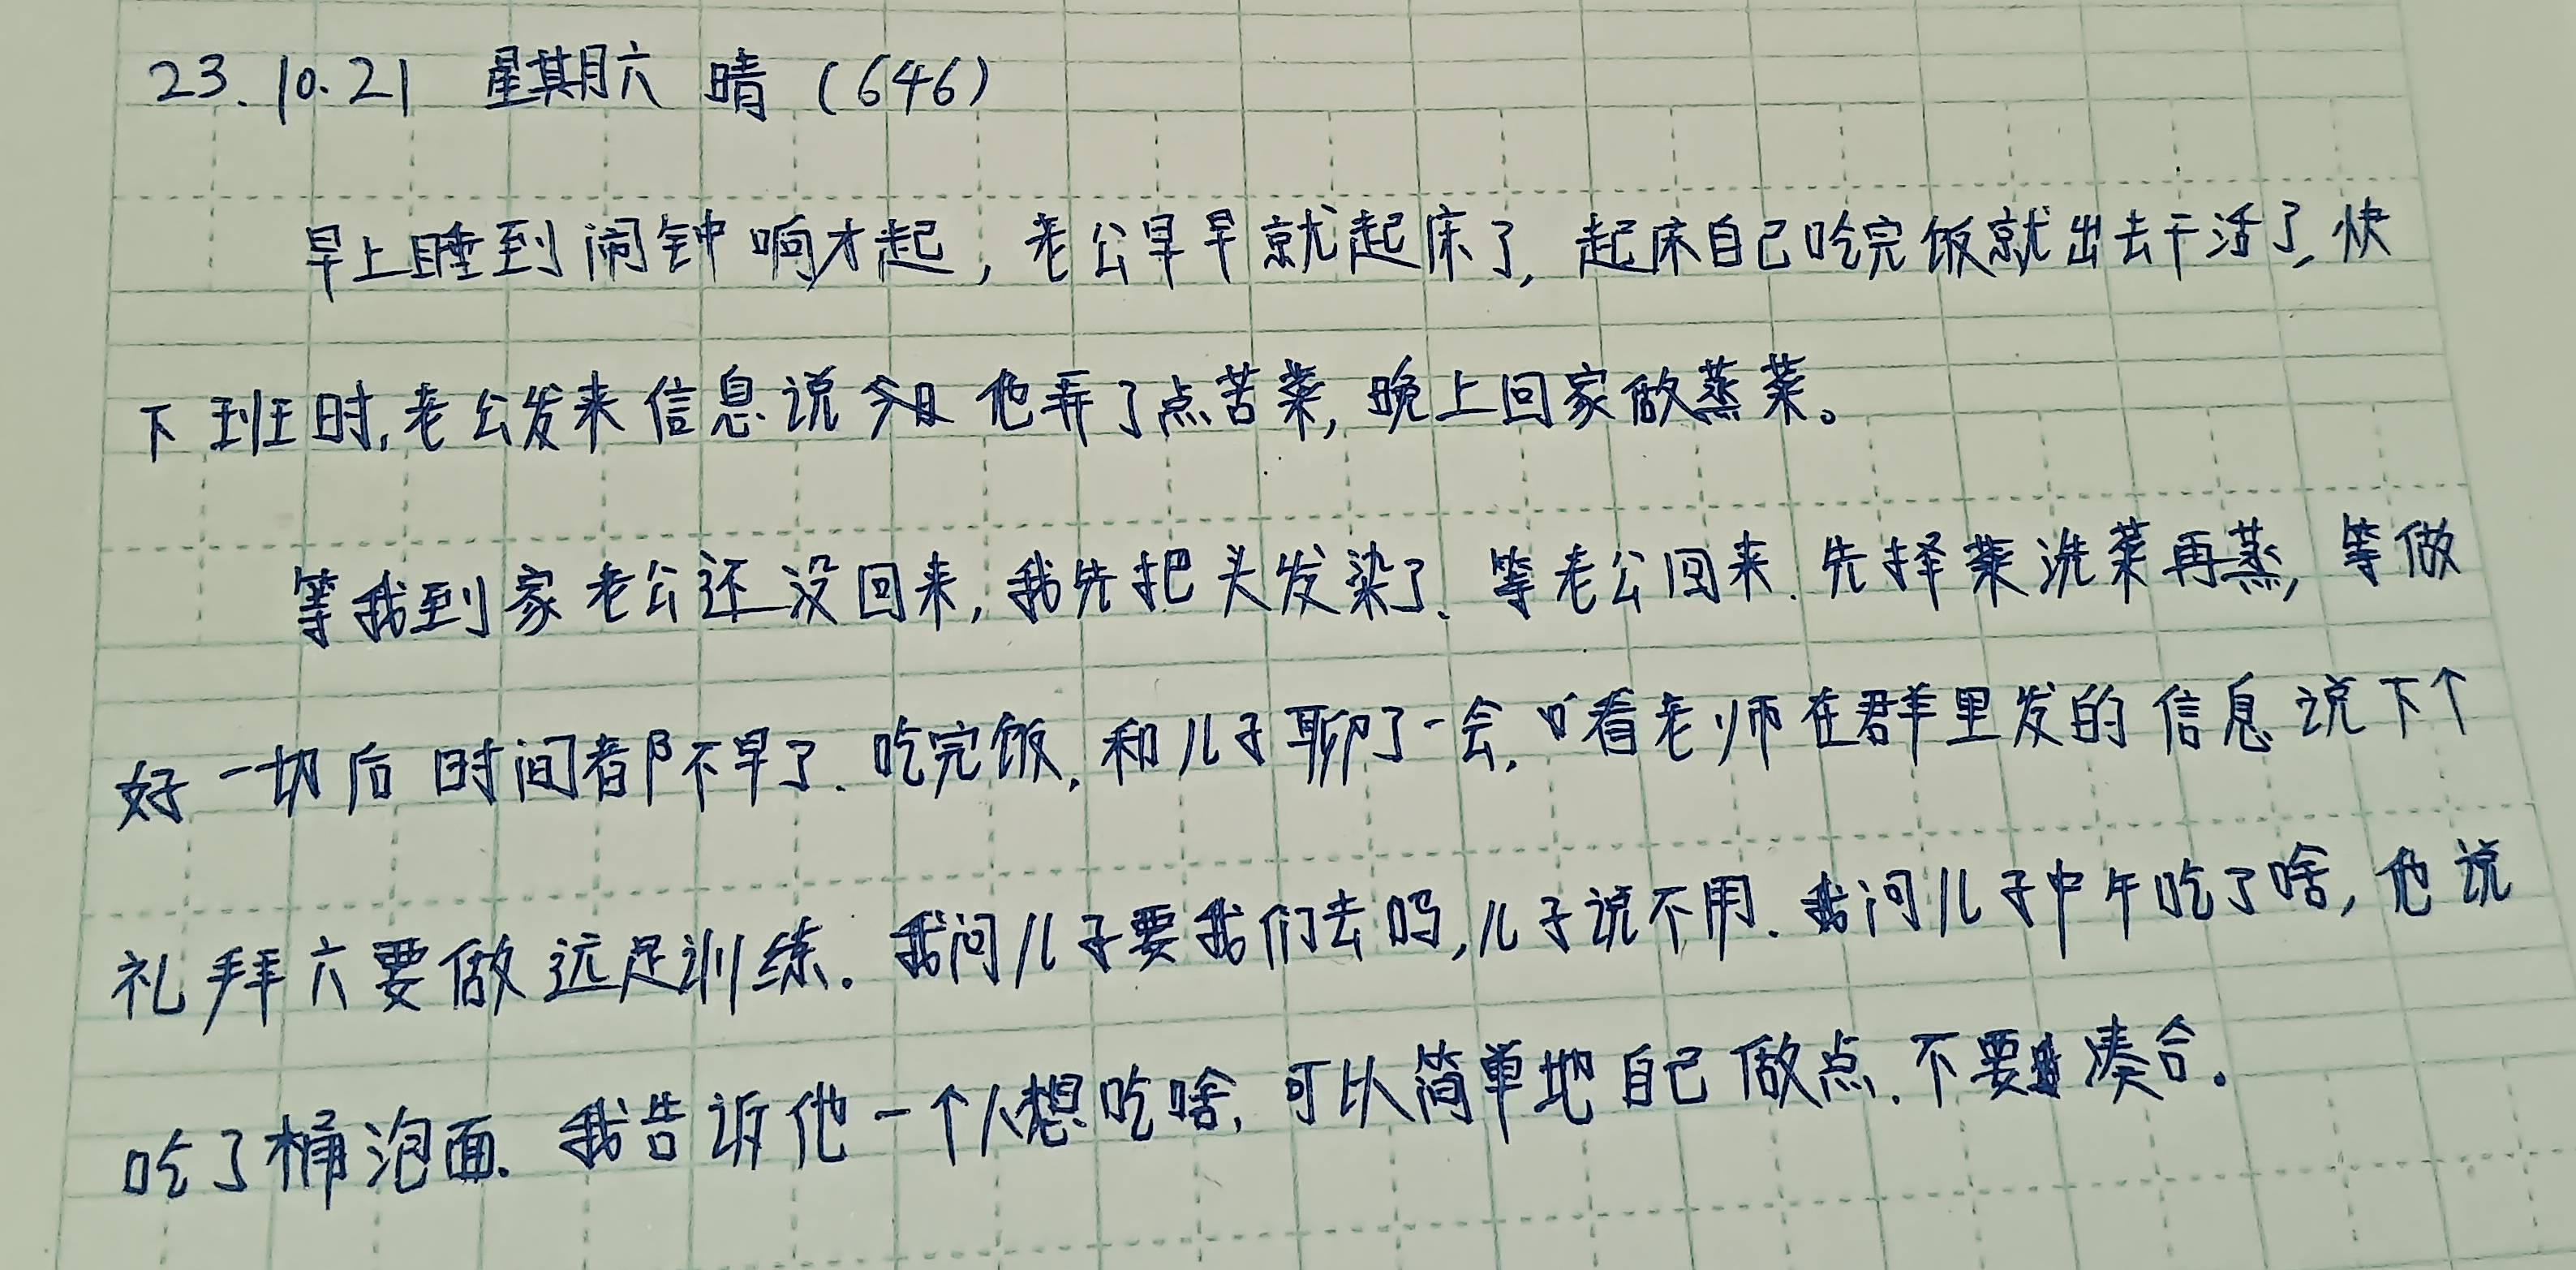 23.10.21 星期六 晴（646）
早上睡到闹钟响才起，老公早早就起床了，起床自己吃完饭就出去干活了，快
下班时，老公发来信息说今日他弄了点苦菜，晚上回家做蒸菜。
等我到家老公还没回来，我先把头发染了、等老公回来.先择菜洗菜再蒸，等做
好一切后时间都不早了.吃完饭，和儿子聊了一会，看老师在群里发的信息说下个
礼拜六要做远足训练.我问儿子要我们去吗，儿子说不用.我问儿子中午吃了啥，他说
吃了桶泡面.我告诉他一个人想吃啥，可以简单地自己做点.不要凑合。